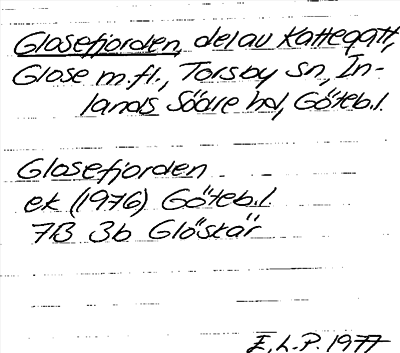 Glosefjorden, del av Kattegatt,
Glose m.fl., Torsby sn, In-
lands Södre hd, Göteb.l.
Glosefjorden
ek (1976) Göteb.l.
7B 3b Glöskär
E.L.P. 1977